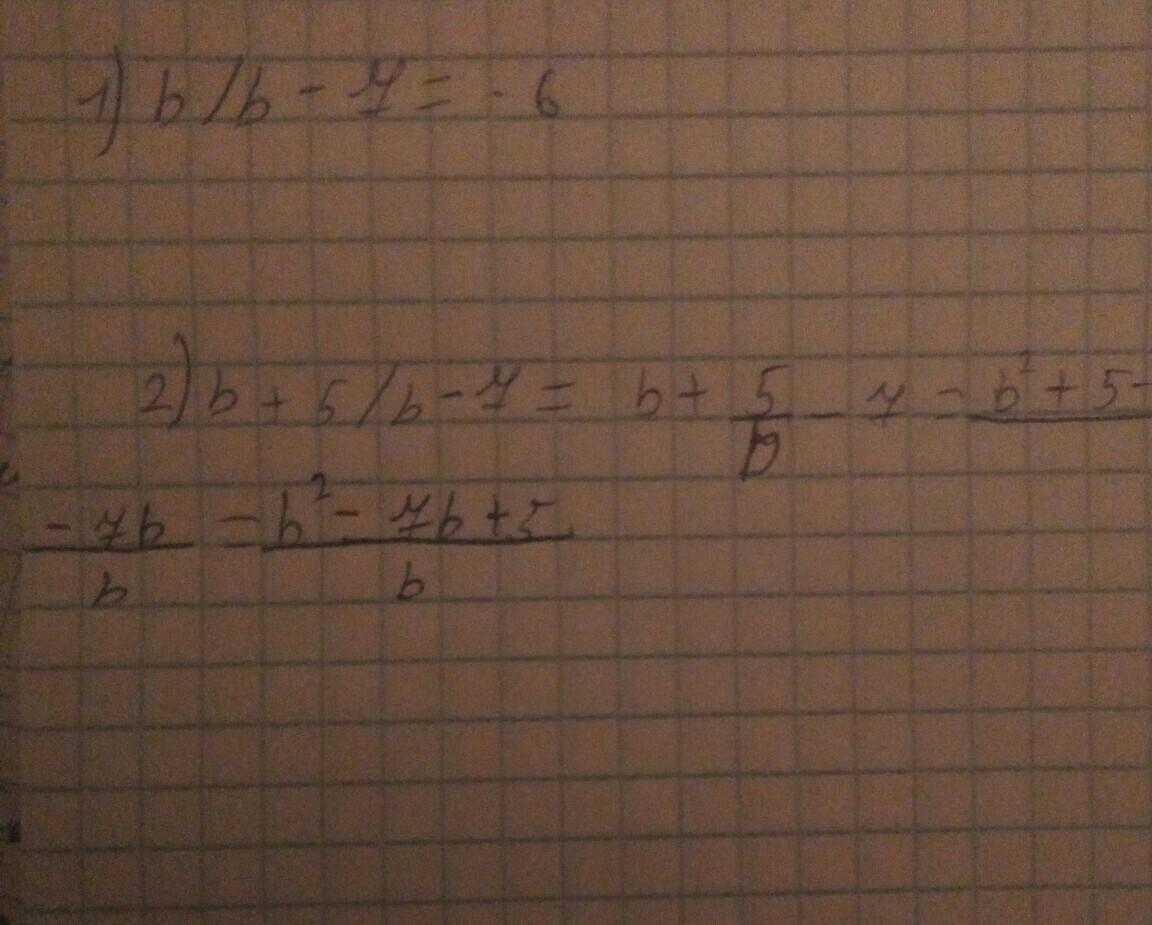 1) b/b - 7 = -6
2) b + 5/b - 7 = b + \frac{5}{b} - 7 = \frac{b² + 5 -}{}
\frac{- 7b}{b} = \frac{b² - 7b + 5}{b}